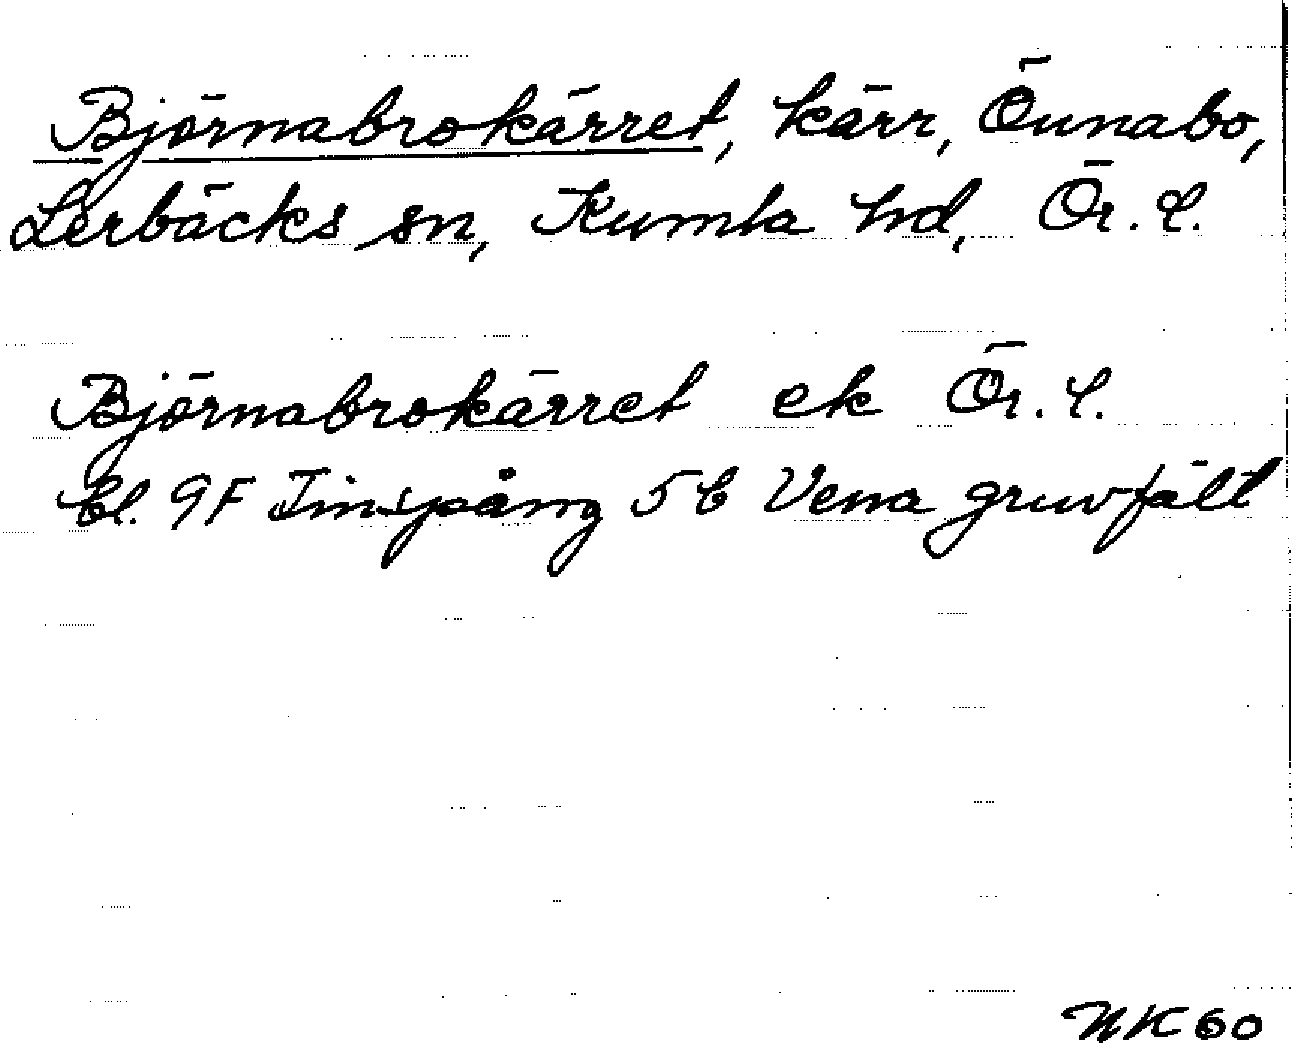 Björnabrokärret, kärr, Önnabo,
Lerbäcks sn, Kumla hd, Ör. l.
Björnabrokärret ek Ör. l.
bl. 9F Finspång 5 b Vena gruvfält
NK 60